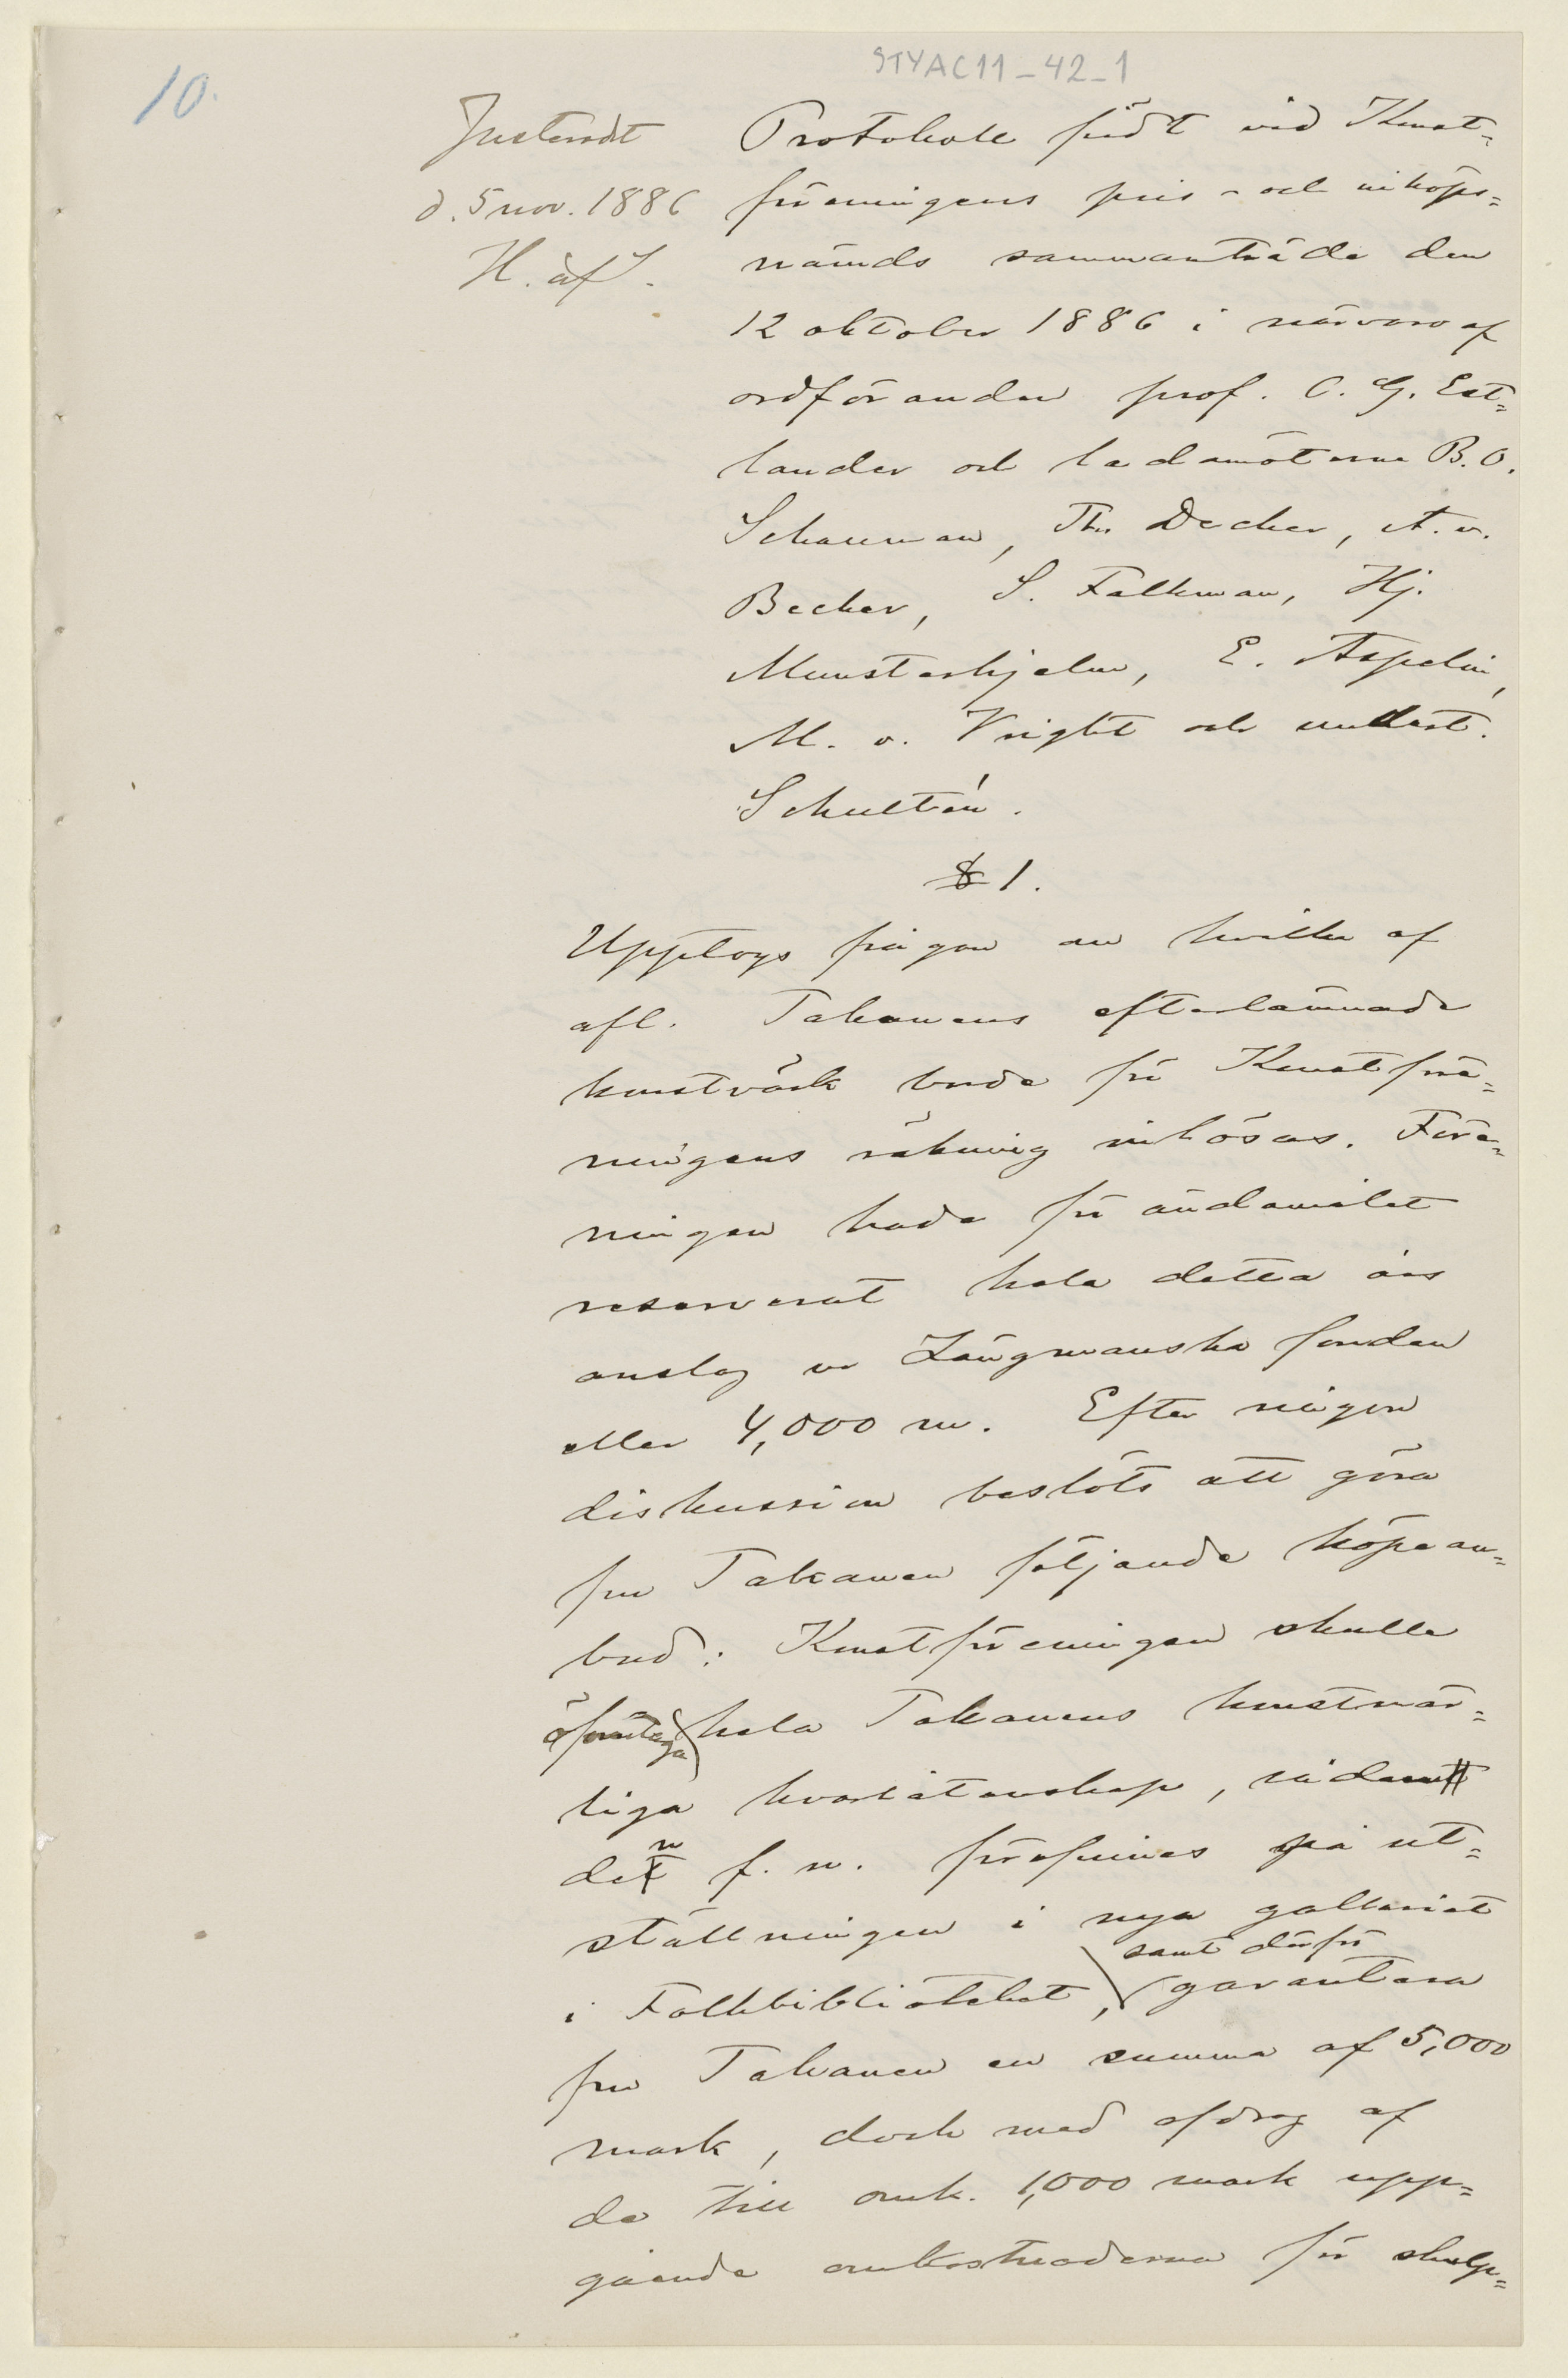 STYAC11-42-1
10.
Justeradt
d. 5 nov. 1886
H. af S.
Protokoll fördt vid Konst=
föreningens pris- och inköps=
nämds sammanträde den
12 oktober 1886 i närvaro af
ordföranden prof. C. G. Est=
lander och ledamöterna B. O.
Schauman, Th. Decker, A. v.
Becker, S. Falkman, Hj.
Munsterhjelm, E. Aspelin,
M. v. Vright och undert.
Schultén.
§ 1.
Upptogs frågan om hvilka af
afl. Takanens efterlämnade
konstvärk borde för Konstföre=
ningens räkning inlösas. Före=
ningen hade för ändamålet
reserverat hela detta års
anslag ur Längmanska fonden
eller 4,000 m. Efter någon
diskussion beslöts att göra
fru Takanen följande köpean=
bud: Konstföreningen skulle
öfvertaga hela Takanens konstnär=
liga kvarlåtenskap, sådant
den f. n. förefinnes på ut=
ställningen i nya galleriet
samt därför
i Folkbiblioteket, garantera
fru Takanen en summa af 5,000
mark, dock med afdrag af
de till omk. 1,000 mark upp=
gående omkostnaderna för skulp=